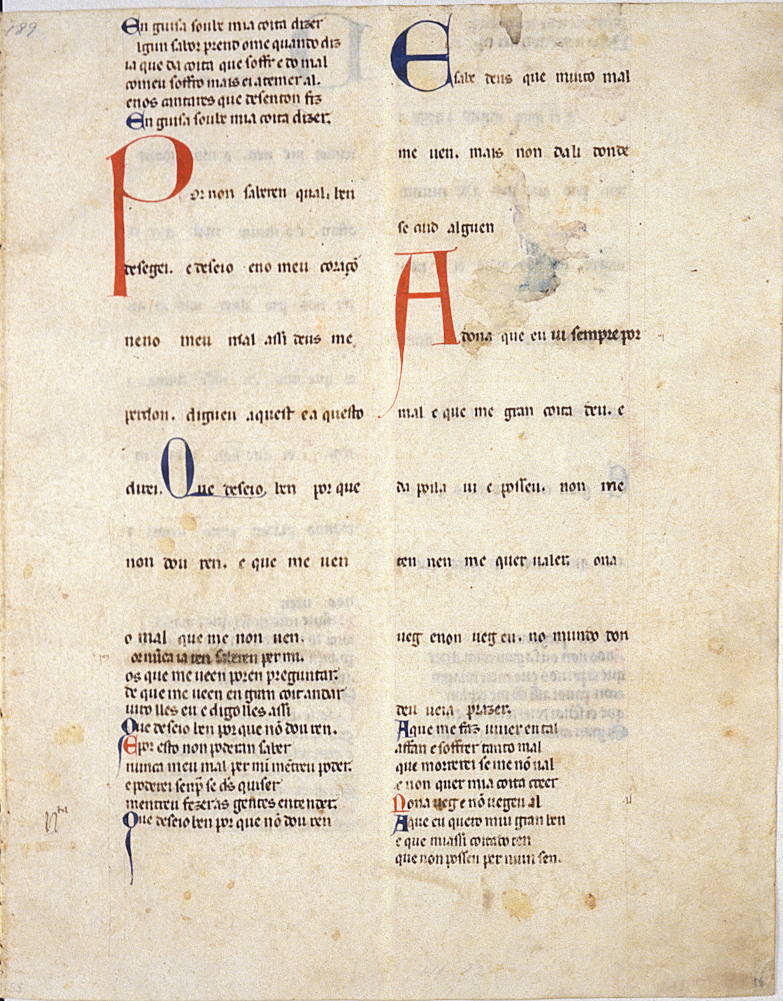 189
En guisa soube mia coita dizer
algun sabor prend ome quando diz
ia que da coita que soffr e do mal
com eu soffro mais ei a temer al.
en os cantares que desenton fiz
En guisa soube mia coita dizer.
Por non saberen qual. ben
desegei. e deseio eno meu coraçõ
neno meu mal assi deus me
perdon. digueu aquest e a questo
direi. Que deseio, ben por que
non dou ren. e que me uen
o mal que me non uen.
ornũca ia ren saberen per mi.
os que me ueen poren preguntar.
de que me ueen en gran coit andar
uiro lles eu e digo lles assi
Que deseio ben por que nõ dou ren.
E por esto non poderan saber
nunca meu mal per mi mẽtreu poder.
e poderei senp̃ se d̃s quiser
mentreu fezeras gentes entender.
Que deseio ben por que nõ dou ren
E sabe deus que muito mal
me uen. mais non dali donde
se cuid alguen
A dona que eu ui sempre por
mal e que me gran coita deu. e
da poila ui e posseu. non me
ten nen me quer ualer. ona
ueg e non ueg eu. no mundo don
deu ueia prazer.
A que me faz uiuer en tal
affan e soffrer tanto mal
que morrerei se me nõ ual
e non quer mia coita creer
Nona ueg e nõ uegeu al
A que eu quero mui gran ben
e que massi coitado ten
que non posseu per niun sen.